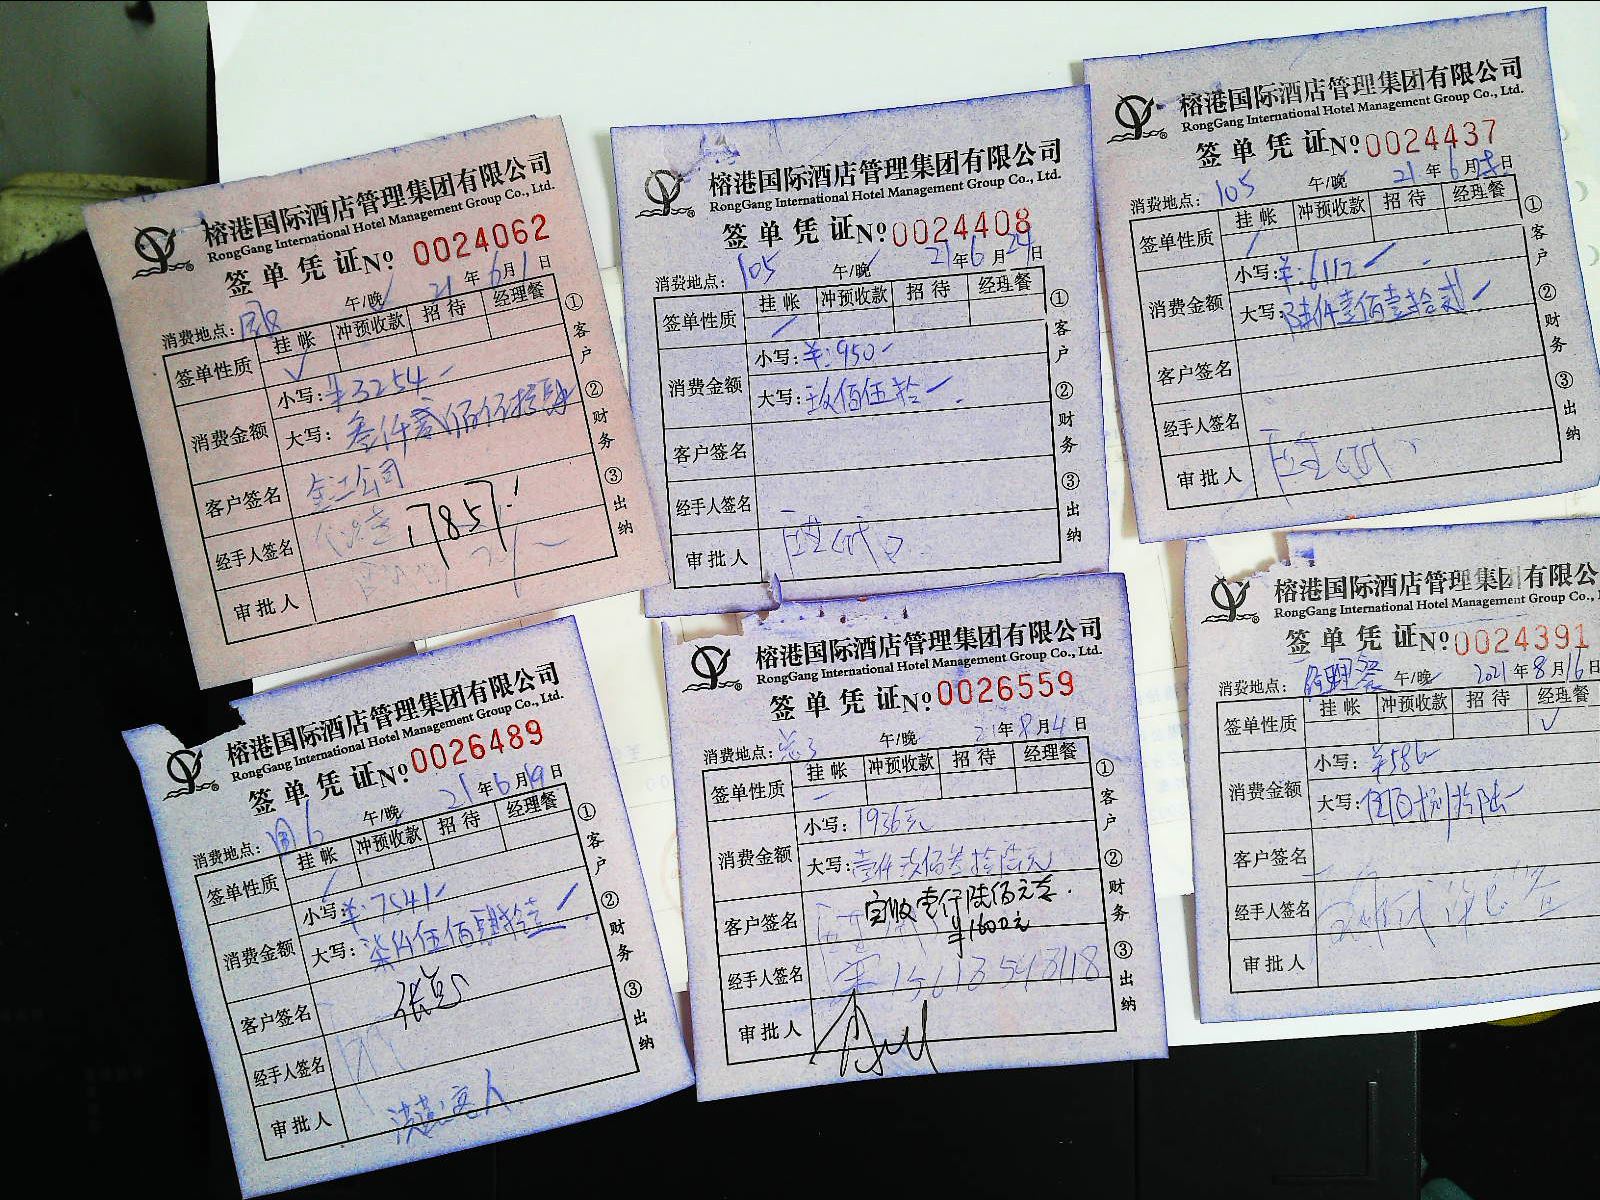 榕港国际酒店管理集团有限公司
RongGang International Hotel Management Group Co., Ltd.
签单凭证 № 0024062
消费地点: 午/晚 21年6月1日
签单性质 挂帐 冲预收款 招待 经理餐
消费金额 小写: ¥3254
大写: 叁仟贰佰伍拾肆
客户签名 金江公司
经手人签名 1785
审批人
①客户 ②财务 ③出纳
榕港国际酒店管理集团有限公司
RongGang International Hotel Management Group Co., Ltd.
签单凭证 № 0024408
消费地点: 105 午/晚 21年6月29日
签单性质 挂帐 冲预收款 招待 经理餐
消费金额 小写: ¥:950
大写: 玖佰伍拾
客户签名
经手人签名
审批人
①客户 ②财务 ③出纳
榕港国际酒店管理集团有限公司
RongGang International Hotel Management Group Co., Ltd.
签单凭证 № 0024437
消费地点: 105 午/晚 21年6月日
签单性质 挂帐 冲预收款 招待 经理餐
消费金额 小写: ¥:6112
大写: 陆仟壹佰壹拾贰
客户签名
经手人签名
审批人
①客户 ②财务 ③出纳
榕港国际酒店管理集团有限公司
RongGang International Hotel Management Group Co., Ltd.
签单凭证 № 0026489
消费地点: 午/晚 21年6月19日
签单性质 挂帐 冲预收款 招待 经理餐
消费金额 小写: ¥:7541
大写: 柒仟伍佰肆拾壹
客户签名
经手人签名
审批人
①客户 ②财务 ③出纳
榕港国际酒店管理集团有限公司
RongGang International Hotel Management Group Co., Ltd.
签单凭证 № 0026559
消费地点: 午/晚 21年8月4日
签单性质 挂帐 冲预收款 招待 经理餐
消费金额 小写: 1936元
大写: 壹仟玖佰叁拾陆元
客户签名 实收壹仟陆佰元
¥1600元
经手人签名
审批人
①客户 ②财务 ③出纳
榕港国际酒店管理集团有限公
RongGang International Hotel Management Group Co.,
签单凭证 № 0024391
消费地点: 经理餐 午/晚 2021年8月16日
签单性质 挂帐 冲预收款 招待 经理餐
消费金额 小写: ¥586
大写: 伍佰捌拾陆
客户签名
经手人签名
审批人